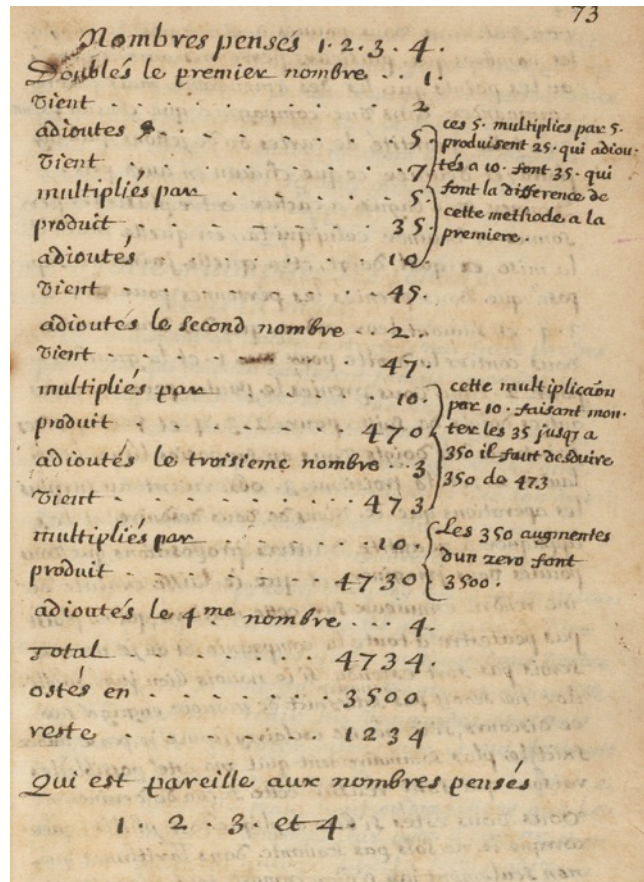 73
Nombres pensés 1. 2. 3. 4.
Doublés le premier nombre . . 1.
vient . . . . . . . . 2
adioutes . . . . . . . 5.
vient . . . . . . . . 7
multipliés par . . . . 5.
produit . . . . . . 35.
adioutés . . . . . . 10
vient . . . . . . . 45.
adioutés le second nombre . . 2.
vient . . . . . . 47.
multipliés par . . . . 10.
produit . . . . . . 470
adioutés le troisieme nombre . . 3
vient . . . . . . . 473
multipliés par . . . . 10.
produit . . . . . . 4730
adioutés le 4.me nombre . . . 4.
Total . . . . . . . 4734.
ostés en . . . . . . 3500
reste . . . . . . . 1234
Qui est pareille aux nombres pensés
1. 2. 3. et 4.
ces 5. multiplies par 5.
produisent 25. qui adiou-
tés a 10. font 35. qui
font la difference de
cette methode a la
premiere.
cette multiplicãon
par 10. faisant mon-
ter les 35 jusqs a
350 il faut desduire
350 de 473
Les 350 augmentes
dun zero font
3500.